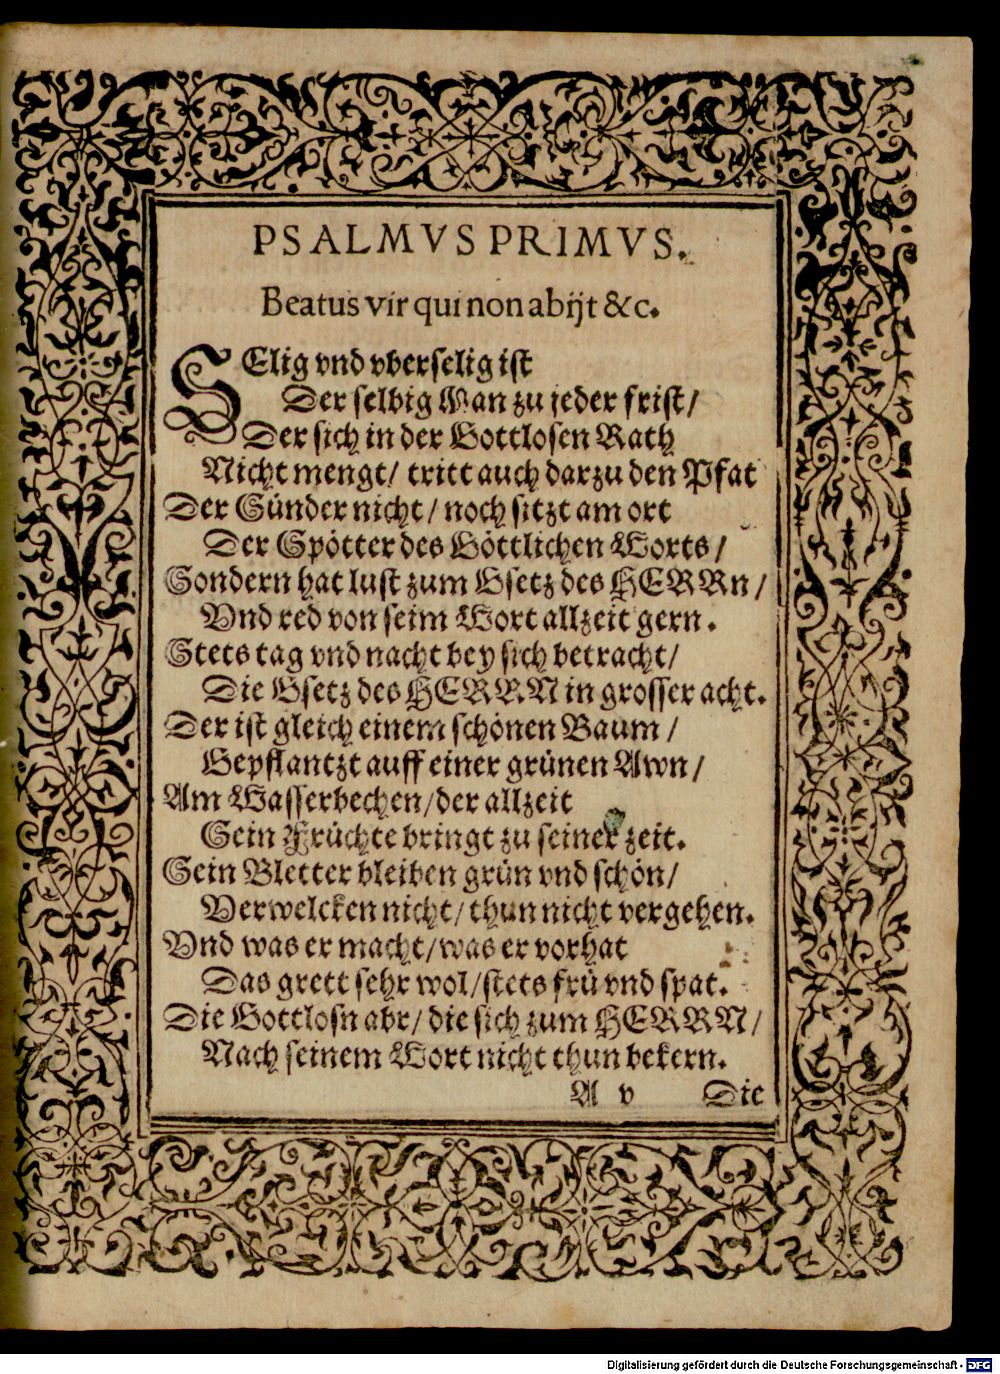 PSALMVS PRIMVS.
Beatus vir qui non abijt &c.
SElig vnd vberselig ist
Der selbig Man zu jeder frist/
Der sich in der Gottlosen Rath
Nicht mengt/ tritt auch darzu den Pfat
Der Sünder nicht/ noch sitzt am ort
Der Spötter des Göttlichen Worts/
Sondern hat lust zum Gsetz des HERRn/
Vnd red von seim Wort allzeit gern.
Stets tag vnd nacht bey sich betracht/
Die Gsetz des HERRN in grosser acht.
Der ist gleich einem schönen Baum/
Gepflantzt auff einer grünen Awn/
Am Wasserbechen/ der allzeit
Sein Früchte bringt zu seiner zeit.
Sein Bletter bleiben grün vnd schön/
Verwelcken nicht/ thun nicht vergehen.
Vnd was er macht/ was er vorhat
Das grett sehr wol/ stets frü vnd spat.
Die Gottlosn abr/ die sich zum HERRN/
Nach seinem Wort nicht thun bekern.
A v Die
Digitalisierung gefördert durch die Deutsche Forschungsgemeinschaft - DFG